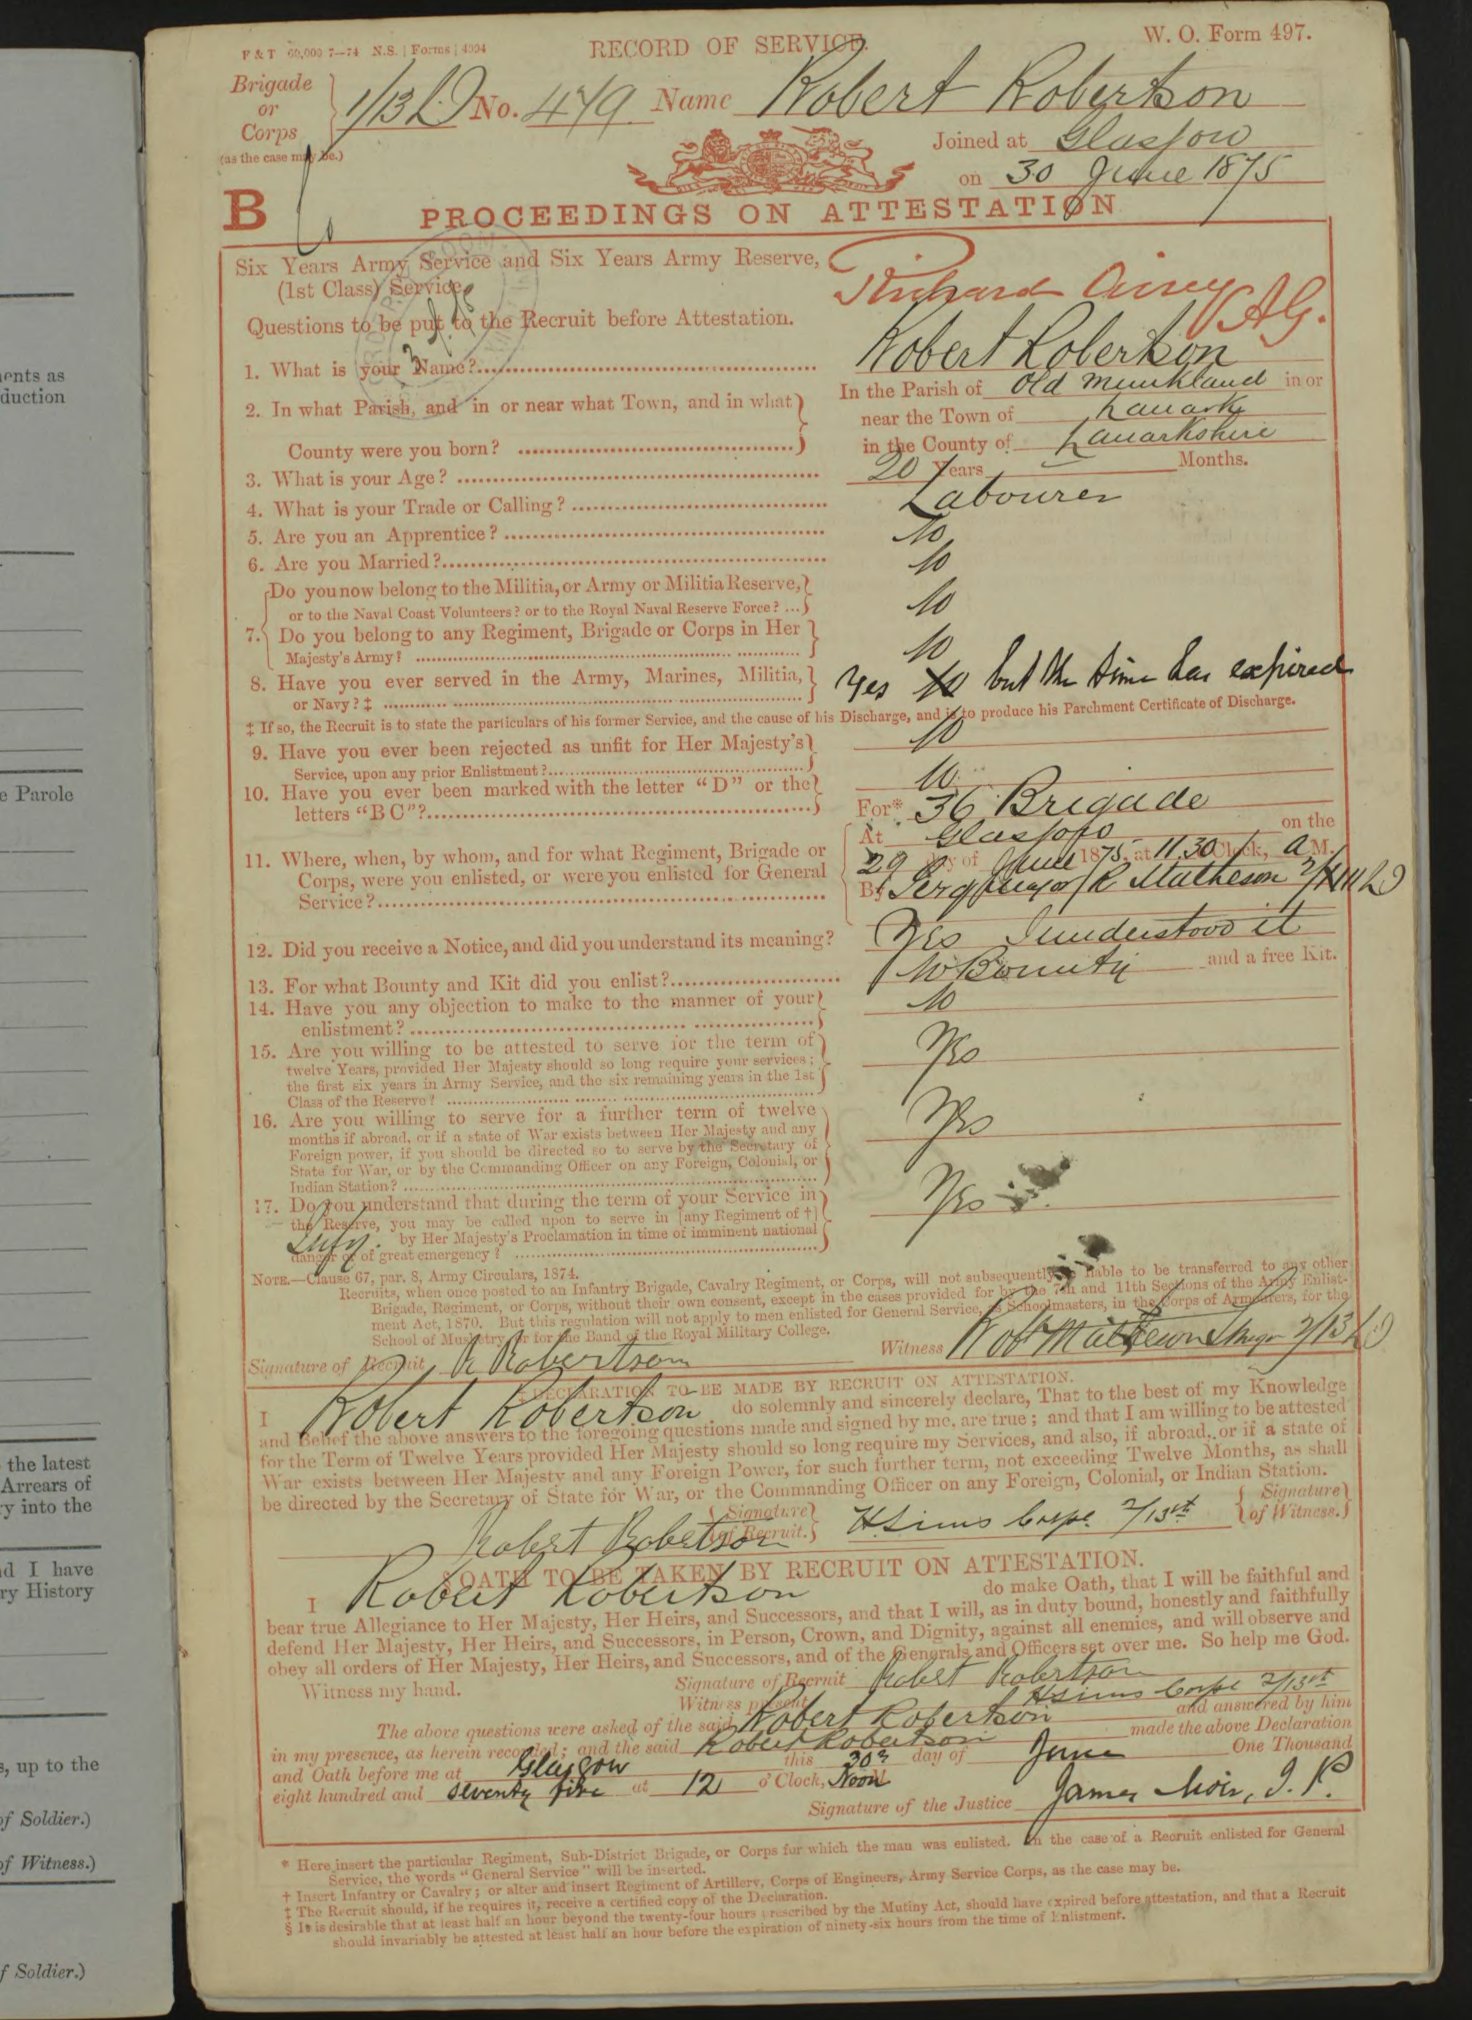 F & T 60,000 7—74 N.S. | Forms | 4094
RECORD OF SERVICE.
W. O. Form 497.
Brigade
or
Corps
(as the case may be.)
No. 479 Name Robert Robertson
Joined at Glasgow
on 30 June 1875
B
PROCEEDINGS ON ATTESTATION
Six Years Army Service and Six Years Army Reserve,
(1st Class) Service.
Richard Airey AG.
Questions to be put to the Recruit before Attestation.
1. What is your Name? Robert Robertson
2. In what Parish, and in or near what Town, and in what
County were you born?
In the Parish of Old Munkland in or
near the Town of Lanark
in the County of Lanarkshire
3. What is your Age? 20 Years — Months.
4. What is your Trade or Calling? Labourer
5. Are you an Apprentice? No
6. Are you Married? No
7. Do you now belong to the Militia, or Army or Militia Reserve,
or to the Naval Coast Volunteers? or to the Royal Naval Reserve Force? ... No
Do you belong to any Regiment, Brigade or Corps in Her
Majesty's Army? No
8. Have you ever served in the Army, Marines, Militia,
or Navy? ‡ Yes No but the time has expired
‡ If so, the Recruit is to state the particulars of his former Service, and the cause of his Discharge, and is to produce his Parchment Certificate of Discharge.
9. Have you ever been rejected as unfit for Her Majesty's
Service, upon any prior Enlistment? No
10. Have you ever been marked with the letter "D" or the
letters "BC"? No
11. Where, when, by whom, and for what Regiment, Brigade or
Corps, were you enlisted, or were you enlisted for General
Service?
For* 36 Brigade
At Glasgow on the
29 day of June 1875, at 11.30 o'Clock, A M.
By Serg Major R Matheson
12. Did you receive a Notice, and did you understand its meaning? Yes I understood it
13. For what Bounty and Kit did you enlist? No Bounty and a free Kit.
14. Have you any objection to make to the manner of your
enlistment? No
15. Are you willing to be attested to serve for the term of
twelve Years, provided Her Majesty should so long require your services;
the first six years in Army Service, and the six remaining years in the 1st
Class of the Reserve? Yes
16. Are you willing to serve for a further term of twelve
months if abroad, or if a state of War exists between Her Majesty and any
Foreign power, if you should be directed so to serve by the Secretary of
State for War, or by the Commanding Officer on any Foreign, Colonial, or
Indian Station? Yes
17. Do you understand that during the term of your Service in
the Reserve, you may be called upon to serve in [any Regiment of †]
Infy. by Her Majesty's Proclamation in time of imminent national
danger or of great emergency? Yes
NOTE.—Clause 67, par. 8, Army Circulars, 1874.
Recruits, when once posted to an Infantry Brigade, Cavalry Regiment, or Corps, will not subsequently be liable to be transferred to any other
Brigade, Regiment, or Corps, without their own consent, except in the cases provided for by the 7th and 11th Sections of the Army Enlist-
ment Act, 1870. But this regulation will not apply to men enlisted for General Service, as Schoolmasters, in the Corps of Armourers, for the
School of Musketry, or for the Band of the Royal Military College.
Signature of Recruit R Robertson
Witness Robt Matheson
‡ DECLARATION TO BE MADE BY RECRUIT ON ATTESTATION.
I Robert Robertson do solemnly and sincerely declare, That to the best of my Knowledge
and Belief the above answers to the foregoing questions made and signed by me, are true; and that I am willing to be attested
for the Term of Twelve Years provided Her Majesty should so long require my Services, and also, if abroad, or if a state of
War exists between Her Majesty and any Foreign Power, for such further term, not exceeding Twelve Months, as shall
be directed by the Secretary of State for War, or the Commanding Officer on any Foreign, Colonial, or Indian Station.
Robert Robertson (Signature of Recruit.) H Sims Corpl. 2/13th (Signature of Witness.)
§ OATH TO BE TAKEN BY RECRUIT ON ATTESTATION.
I Robert Robertson do make Oath, that I will be faithful and
bear true Allegiance to Her Majesty, Her Heirs, and Successors, and that I will, as in duty bound, honestly and faithfully
defend Her Majesty, Her Heirs, and Successors, in Person, Crown, and Dignity, against all enemies, and will observe and
obey all orders of Her Majesty, Her Heirs, and Successors, and of the Generals and Officers set over me. So help me God.
Witness my hand.
Signature of Recruit Robert Robertson
Witness present H Sims Corpl 2/13th
The above questions were asked of the said Robert Robertson and answered by him
in my presence, as herein recorded; and the said Robert Robertson made the above Declaration
and Oath before me at Glasgow this 30th day of June One Thousand
eight hundred and seventy five at 12 o'Clock, Noon
Signature of the Justice James Moir, J. P.
* Here insert the particular Regiment, Sub-District Brigade, or Corps for which the man was enlisted. In the case of a Recruit enlisted for General
Service, the words "General Service" will be inserted.
† Insert Infantry or Cavalry; or alter and insert Regiment of Artillery, Corps of Engineers, Army Service Corps, as the case may be.
‡ The Recruit should, if he requires it, receive a certified copy of the Declaration.
§ It is desirable that at least half an hour beyond the twenty-four hours prescribed by the Mutiny Act, should have expired before attestation, and that a Recruit
should invariably be attested at least half an hour before the expiration of ninety-six hours from the time of Enlistment.
ents as
duction
e Parole
the latest
Arrears of
ry into the
d I have
ry History
s, up to the
of Soldier.)
of Witness.)
f Soldier.)